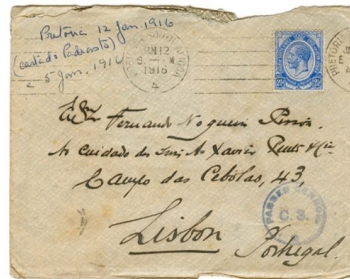 Pretoria 12 Jan. 1916
(carta do Padrasto)
e 5 Jan. 1916
PRETORIA
JAN 12
1916
4
PRETORIA
Exmo Snr
Fernando Nogueira Pessoa
Ao Cuidado dos Snrs A. Xavier Pinto & Cia
Campo das Cebolas, 43,
Lisbon
Portugal.
PASSED CENSOR
C. 3.